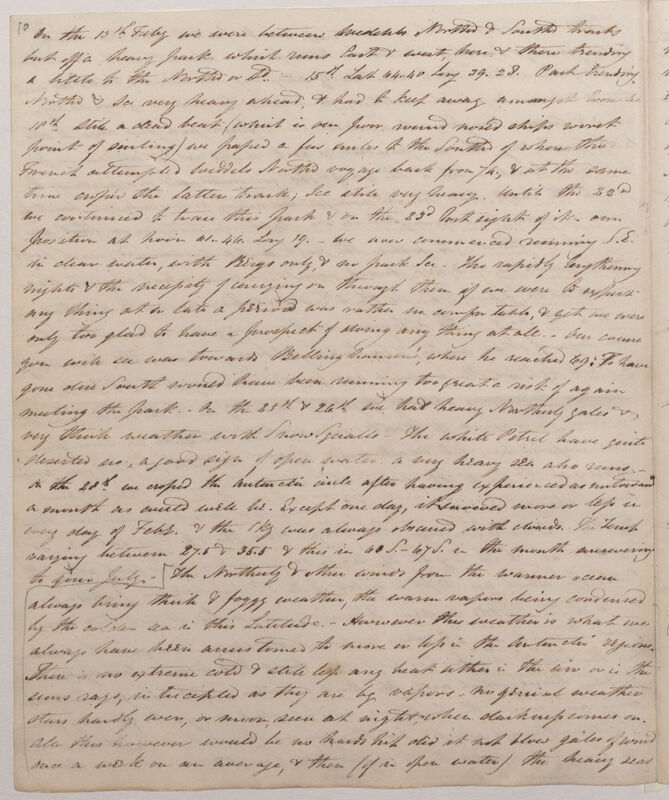 10
On the 13th Feby we were between Weddells Northd & Southd tracks
but off a heavy pack which runs East & west, here & there trending
a little to the Northd or Sd. - 15th Lat 64.40 Long 39.28. Pack trending
Northd & Ice very heavy ahead, & had to keep away amongst loose ice
18th still a dead beat (which is our poor round nosed ships worst
point of sailing) we passed a few miles to the Southd of where the
French attempted Weddels Northd voyage back from 74, & at the same
time crossed the latter track; Ice still very heavy. Until the 22d
we continued to trace this pack & on the 23d lost sight of it. our
position at noon 61.46. Long 19. - we now commenced running S.E.
in clear water, with Bergs only, & no pack Ice. The rapidly lengthening
nights & the necessity of carrying on through them if we were to expect
any thing at so late a period was rather uncomfortable, & yet we were
only too glad to have a prospect of doing any thing at all. - Our course
you will see was towards Bellinghausens, where he reached 69: To have
gone due South would have been running too great a risk of again
meeting the pack. - On the 25th & 26th we had heavy Northerly gales &
very thick weather with Snow Squalls - The white Petrel have quite
deserted us, a good sign of open water. a very heavy sea also runs. -
On the 28th we crossed the antarctic circle after having experienced as
a month as could well be. Except one day, it snowed more or less
every day of Feby. & the sky was always obscured with clouds. The Temp
varying between 27.5 & 35.5 & this in 60 S. - 67 S. in the month answering
to your July. - [The Northerly & other winds from the warmer ocean
always bring thick & foggy weather, the warm vapors being condensed
by the colder sea in this Latitude. - However this weather is what we
always have been accustomed to more or less in the Antarctic regions.
There is no extreme cold & still less any heat either in the air or in the
suns rays, intercepted as they are by vapors. no genial weather
stars hardly ever, or moon, seen at night when darkness comes on.
All this however would be no hardship did it not blow gales of wind
once a week on an average, & then (if in open water) the heavy seas